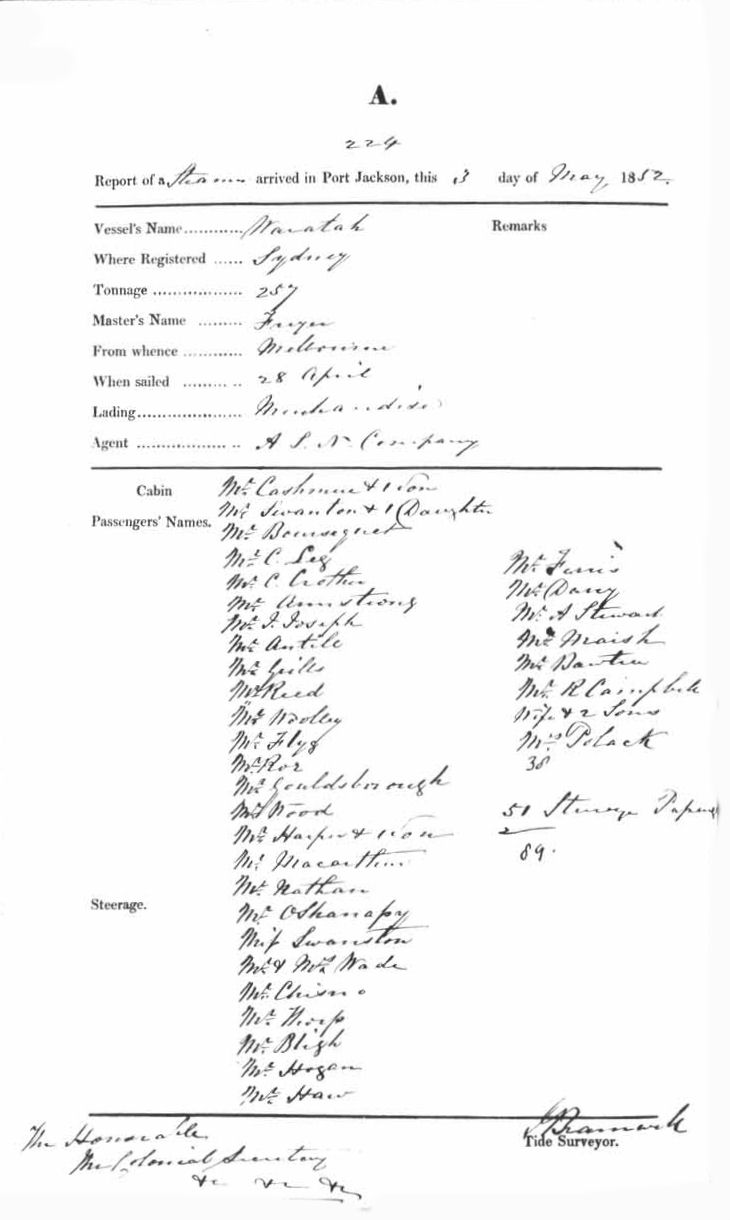 A.
224
Report of a Steamer arrived in Port Jackson, this 3 day of May 1852.
Vessel's Name............ Waratah
Remarks
Where Registered ...... Sydney
Tonnage .................. 257
Master's Name .........
From whence ............ Melbourne
When sailed ............ 28 April
Lading..................... Merchandise
Agent .................... A S. N. Company
Cabin
Passengers' Names.
Mr. Cashmere & 1 Son
Mr. Swanton & 1 Daughter
Mr.
Mr. C. Leg
Mr. C. Crother
Mr. Armstrong
Mr. J. Joseph
Mr. Antile
Mr. Gills
Mr. Reed
Mr. Woolley
Mr.
Mr.
Mr. Gouldsborough
Mr. Wood
Mr. Harper & 1 Son
Mr. Macarthur
Mr. Nathan
Steerage.
Mr. OShanapy
Miss Swanston
Mr. & Mrs. Wade
Mr.
Mr. Thorp
Mr. Bligh
Mr. Hogan
Mr. Haw
Mr. Ferris
Mr. Davy
Mr. A Stewart
Mr. Maish
Mr.
Mr. R Campbell
Wife & 2 Sons
Mrs. Polack
38
51 Steerage
89.
The Honorable
The Colonial Secretary
&c &c &c
Tide Surveyor.